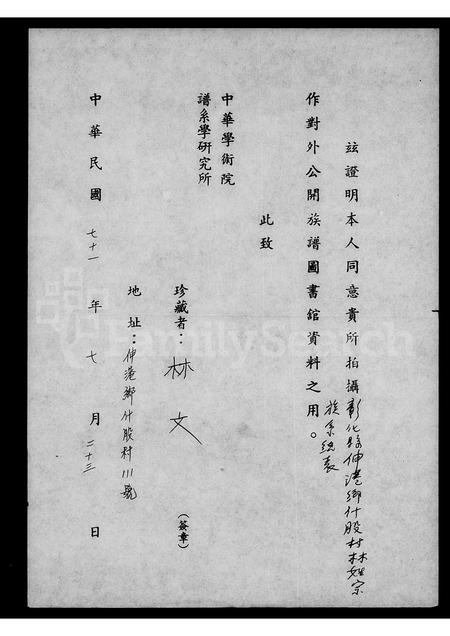 茲證明本人同意貴所拍攝彰化縣伸港鄉什股村林姓宗
族系統表
作對外公開族譜圖書館資料之用。
此致
中華學術院
譜系學研究所
珍藏者：林文（簽章）
地址：伸港鄉什股村111號
中華民國七十一年七月二十三日
FamilySearch